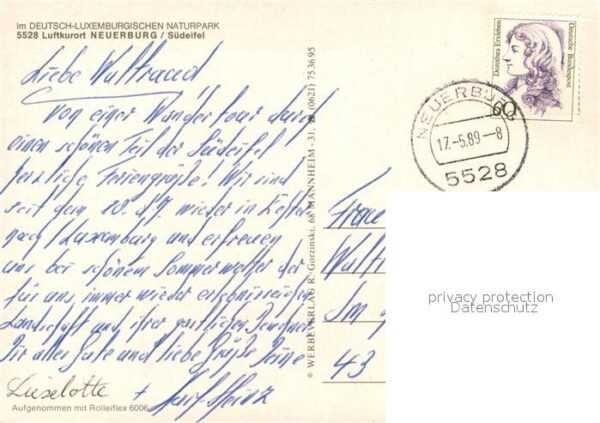 Im DEUTSCH-LUXEMBURGISCHEN NATURPARK
5528 Luftkurort NEUERBURG / Südeifel
Liebe Waltraud
von einer Wandertour durch
einen schönen Teil der Südeifel
herzliche Feriengrüße! Wir sind
seit dem wieder in
/Luxemburg und erfreuen
uns bei schönem Sommerwetter der
für uns immer wieder erlebnisreichen
Landschaft und ihrer gastlichen Bewohner
Dir alles Gute und liebe Grüße Deine
Lieselotte + Karl-Heinz
Aufgenommen mit Rolleiflex 6006
© WERBEVERLAG R. Gorzinski, 68 MANNHEIM - 31, ☎ (0621) 75 36 95
Dorothea Erxleben
Deutsche Bundespost
60
NEUERBURG
17.-5.89-8
5528
Frau
Walt
Im
43
privacy protection
Datenschutz